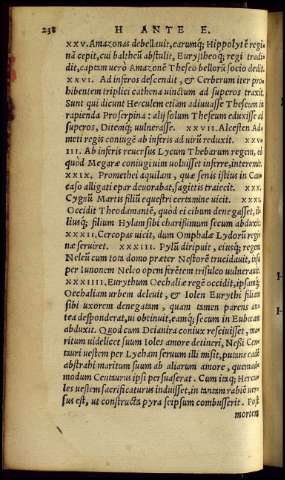 238 H ANTE E.
XXV. Amazonas debellauit, earumq; Hippolytē regi
nā cepit, cui baltheū abstulit, Eurystheoq; regi tradi
dit, captam uerò Amazonē Theseo bellorū socio dedit.
XXVI. Ad inferos descendit, & Cerberum iter pro
hibentem triplici cathena uinctum ad superos traxit.
Sunt qui dicunt Herculem etiam adiuuasse Theseum in
rapienda Proserpina: alij solum Theseum eduxisse ad
superos, Ditonq; uulnerasse. XXVII. Alcesten Ad
meti regis coniugē ab inferis ad uirū reduxit. XXV
III. Ab inferis reuersus Lycum Thebarum regem, eò
quòd Megaræ coniugi uim uoluisset inferre, interemit.
XXIX. Promethei aquilam, quæ senis istius in Cau
caso alligati epar deuorabat, sagittis traiecit. XXX.
Cygnū Martis filiū equestri certamine uicit. XXXI.
Occidit Theodamantē, quòd ei cibum denegasset, il
liusq; filium Hylan sibi charissimum secum abduxit.
XXXII. Cercopas uicit, cum Omphalæ Lydorū regi
næ seruiret. XXXIII. Pylū diripuit, eiusq; regem
Neleū cum tota domo præter Nestorē trucidauit, ipsā
per Iunonem Neleo opem ferētem trisulco uulnerauit.
XXXIIII. Eurythum Oechaliæ regē occidit, ipsamq;
Oechaliam urbem deleuit, & Iolen Eurythi filiam
sibi uxorem denegatam, quam tamen parens an
tea desponderat, ui obtinuit, eamq; secum in Eubœam
abduxit. Quod cum Deianira coniux resciuisset, ma
ritum uidelicet suum Ioles amore detineri, Nessi Cen
tauri uestem per Lycham seruum illi misit, putans eā
abstrahi maritum suum ab aliarum amore, quemad
modum Centaurus ipsi persuaserat. Cum itaq; Hercu
les uestem sacrificaturus induisset, in tantam rabiē uer
sus est, ut constructa pyra seipsum combusserit. Post
mortem